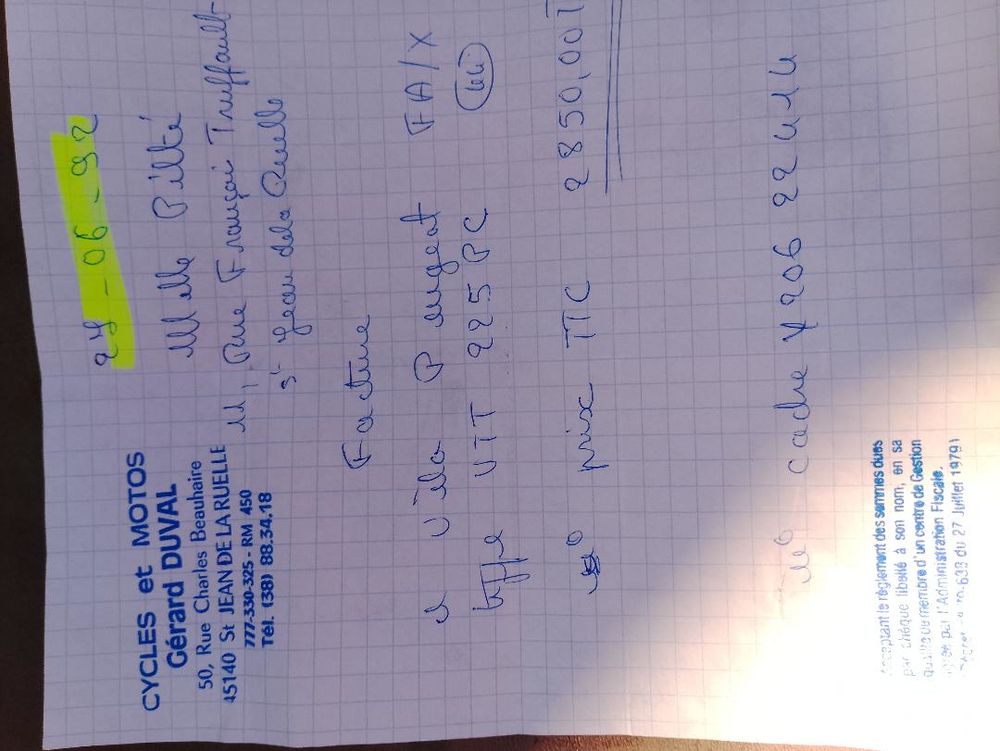 CYCLES et MOTOS
Gérard DUVAL
50, Rue Charles Beauhaire
45140 St JEAN DE LA RUELLE
777-330-325 - RM 450
Tél. (38) 88.34.18
27-06-92
Melle Pillté
11, Rue Françoi Truffault
St Jean de la Ruelle
Facture
1 vélo Peugeot FA/X
type VTT 225 PC
prix TTC 2850,00
n° cadre Y206 22414
Acceptant le règlement des sommes dues
par chèque libellé à son nom, en sa
qualité de membre d'un centre de Gestion
agréé par l'Administration Fiscale.
633 du 27 Juillet 1979)